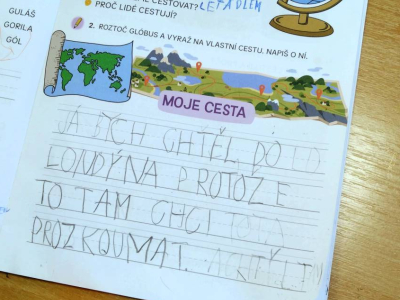 GULÁŠ
GORILA
GÓL
CESTOVAT? LETADLEM
PROČ LIDÉ CESTUJÍ?
2. ROZTOČ GLÓBUS A VYRAZ NA VLASTNÍ CESTU. NAPIŠ O NÍ.
MOJE CESTA
JÁ BYCH CHTĚL DO
LONDÝNA PROTOZE
TO TAM CHCI
PROZKOUMAT.